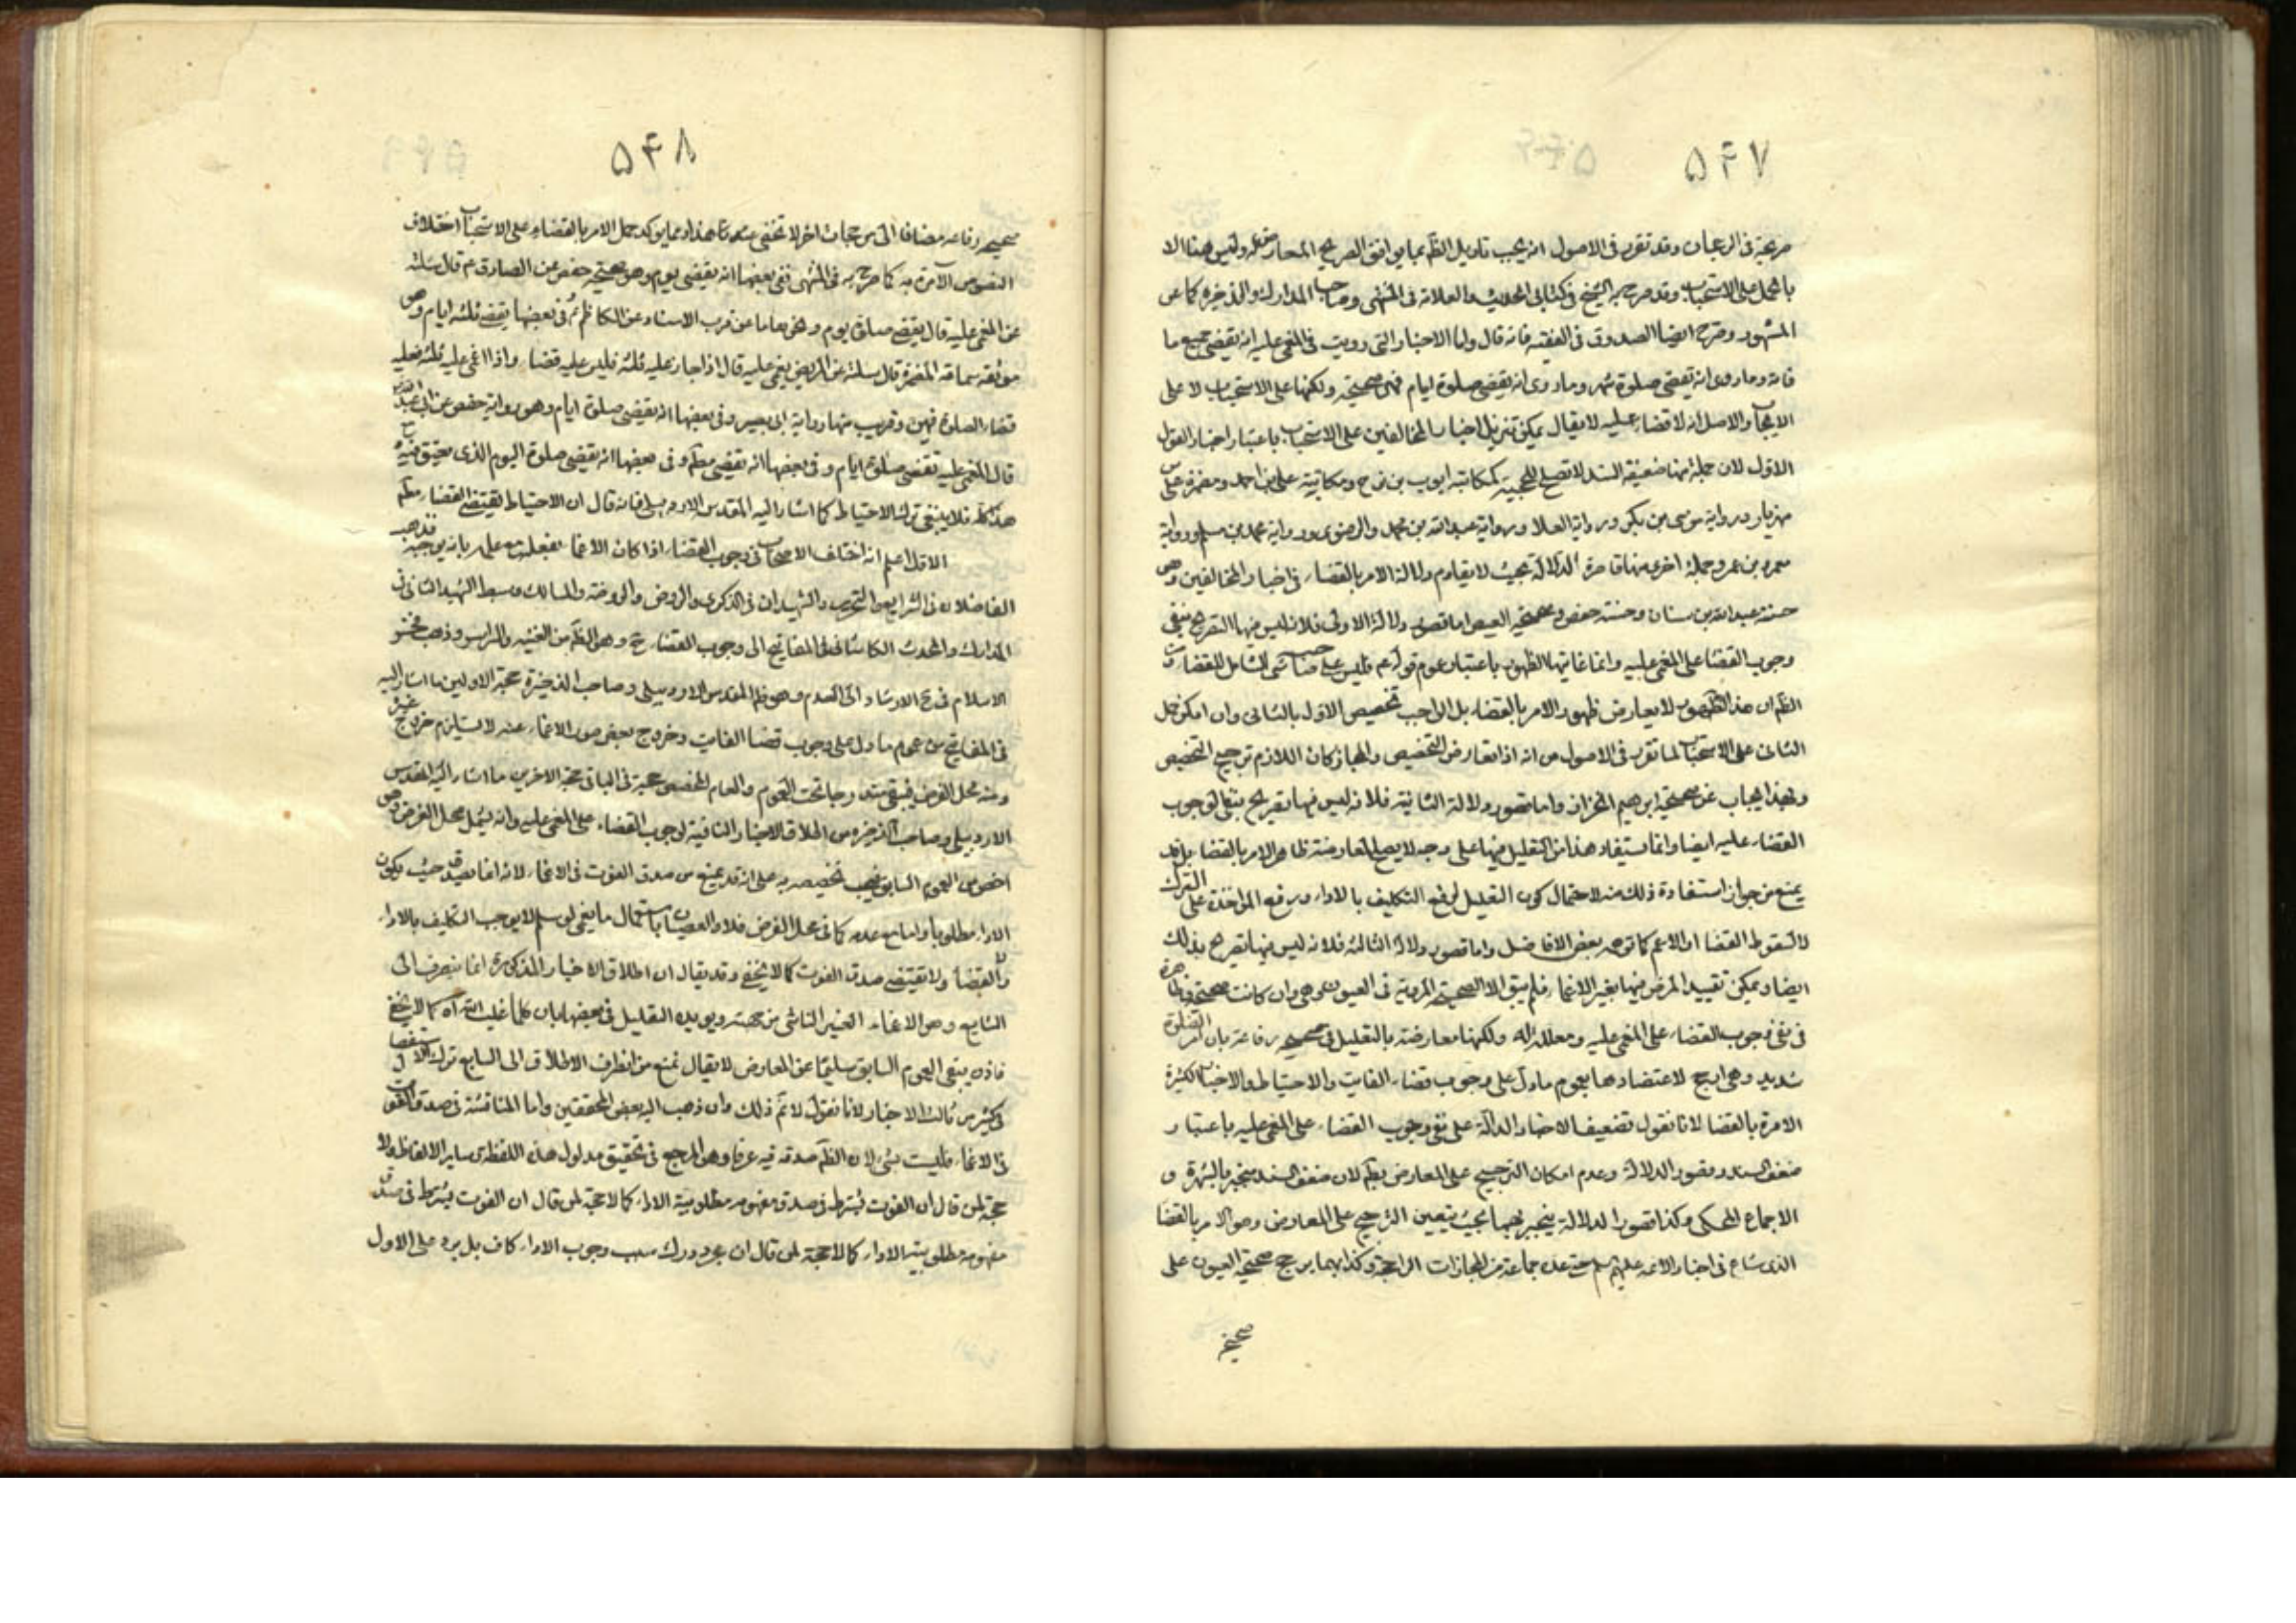 ۵۴۷
صريحة فى الرجحان وقد تقرر فى الاصول انه يجب تاويل الظم بما يوافق الصريح المعارض له وليس هنا الا
بالحمل على الاستحباب وقد صرح به الشيخ فى كتابى الحديث والعلامة فى المنتهى وصاحب المدارك والذخيرة كما عن
المشهور وصرح ايضا الصدوق فى الفقيه فانه قال واما الاخبار التى رويت فى المغمى عليه انه يقضى جميع ما
فاته وما روى انه يقضى صلوة شهر وما روى انه يقضى صلوة ايام فهى صحيحة ولكنها على الاستحباب لا على
الايجاب والاصل انه لا قضاء عليه لا يقال يمكن تنزيل اخبار المخالفين على الاستحباب باعتبار اخبار القول
الاول لان جملة منها ضعيفة السند لا تصلح للحجية كمكاتبة ايوب بن نوح ومكاتبة على بن احمد ومضمرة على بن
مهزيار ورواية موسى بن بكر ورواية العلا ورواية عبدالله بن محمد والرضوى ورواية محمد بن مسلم ورواية
معمر بن عمر وجملة اخرى منها قاصرة الدلالة بحيث لا يقاوم دلالة الامر بالقضاء فى اخبار المخالفين وهى
حسنة عبدالله بن سنان وحسنة حفص وصحيحة العيص اما قصور دلالة الاولى فلانه ليس فيها التصريح بنفى
وجوب القضا على المغمى عليه وانما غايتها الظهور باعتبار عموم قوله عم فليس على صاحبه شئ الشامل للقضا و
الظم ان هذا الظهور لا يعارض ظهور الامر بالقضاء بل الواجب تخصيص الاول بالثانى وان امكن حمل
الثانى على الاستحباب لما تقرر فى الاصول من انه اذا تعارض التخصيص والمجاز كان اللازم ترجيح التخصيص
وبهذا يجاب عن صحيحة ابرهيم الخزاز واما قصور دلالة الثانية فلانه ليس فيها تصريح بنفى الوجوب
القضاء عليه ايضا وانما استفاد هذا من التعليل فيها على وجه لا يصلح لمعارضة ظاهر الامر بالقضا بل قد
يمنع من جواز استفادة ذلك منه لاحتمال كون التعليل لرفع التكليف بالاداء ورفع المؤاخذة على الترك
لا لسقوط القضا او الاعم كما توهمه بعض الافاضل واما قصور دلالة الثالثة فلانه ليس فيها تصريح بذلك
ايضا ويمكن تقييد المرض فيها بغير الاغماء فلم يبق الا الصحيحة المروية فى العيون وهى وان كانت صحيحة وظاهرة
فى نفى وجوب القضاء على المغمى عليه ومعللة له ولكنها معارضة بالتعليل فى صحيحة رفاعة بان امر الصلوة
شديد وهى ارجح لاعتضادها بعموم ما دل على وجوب قضاء الفايت والاحتياط والاخبار الكثيرة
الامرة بالقضا لانا نقول تضعيف الاخبار الدالة على نفى وجوب القضاء على المغمى عليه باعتبار
ضعف السند وقصور الدلالة وعدم امكان الترجيح على المعارض بطم لان ضعف السند منجبر بالشهرة و
الاجماع المحكى وكذا قصور الدلالة ينجبر بهما بحيث يتعين الترجيح على المعارض وهو الامر بالقضا
الذى شاع فى اخبار الائمه عليهم سلم حتى عده جماعة من المجازات الراجحة وكذا بهما يرجح صحيحة العيون على
صحيحة
۵۴۸
صحيحة رفاعه مضافا الى مرجحات اخر لا تخفى عند تا هذا ومما يوكد حمل الامر بالقضاء على الاستحباب اختلاف
النصوص الآمرة به كما صرح به فى المنتهى ففى بعضها انه يقضى يوم وهو صحيحة حفص عن الصادق عم قال سئلته
عن المغمى عليه قال يقضى صلوة يوم وفى بعضها يقضى ثلثه ايام وهو
موثقه سماعة المضمرة قال سئلته عن المريض يغمى عليه قال اذا جاز عليه ثلثه فليس عليه قضاء واذا اغمى عليه ثلثه فعليه
قضاء الصلوة فيهن وقريب منها رواية ابى بصير وفى بعضها انه يقضى صلوة ايام وهو رواية حفص عن ابى عبدالله
قال المغمى عليه يقضى صلوة ايام وفى بعضها انه يقضى مطم وفى بعضها انه يقضى صلوة اليوم الذى يفيق فيه
هذا كله فلا ينبغى ترك الاحتياط كما اشار اليه المقدس الاردبيلى فانه قال ان الاحتياط يقتضى القضاء مطم
الاول اعلم انه اختلف الاصحاب فى وجوب القضاء اذا كان الاغماء بفعله مع علمه بانه يوجبه فذهب
الفاضلان فى الشرايع والتحرير والشهيدان فى الذكرى والروض والروضة والمسالك وسبط الشهيد الثانى فى
المدارك والمحدث الكاشانى فى المفاتيح الى وجوب القضاء ح وهو الظم من الغنيه والمراسم وذهب فخر
الاسلام فى ح الارشاد الى العدم وهو ظم المقدس الاردبيلى وصاحب الذخيرة حجة الاولين ما اشار اليه
فى المفاتيح من عموم ما دل على وجوب قضا الفايت وخروج بعض صور الاغماء عنه لا يستلزم خروج غيره
ومنه محل الفرض فيبقى مندرجا تحت العموم والعام المخصص حجة فى الباقى حجة الاخرين ما اشار اليه المقدس
الاردبيلى وصاحب الذخيره من اطلاق الاخبار النافية لوجوب القضاء على المغمى عليه وانه يشمل محل الفرض وهى
اخص من العموم السابق فيجب تخصيصه به على انه قد يمنع من صدق الفوت فى الاغماء لانه انما يصدق حيث يكون
الاداء مطلوبا واما مع عدمه كما فى محل الفرض فلا والعصيان باستعمال ما يغمى لو سلم لا يوجب التكليف بالاداء
والقضا ولا يقتضى صدق الفوت كما لا يخفى وقد يقال ان اطلاق الاخبار المذكورة انما ينصرف الى
الشايع وهو الاغماء الغير الناشى من جهته ويويده التعليل فى بعضها بان كلما غلب الله آه كما لا يخفى
فاذن يبقى العموم السابق سليما عن المعارض لا يقال نمنع من انصراف الاطلاق الى الشايع لترك الاستفصال
فى كثير من تلك الاخبار لانا نقول لا نم ذلك وان ذهب اليه بعض المحققين واما المناقشة فى صدق الفوت
فى الاغماء فليست بشئ لان الظم صدقه فيه عرفا وهو المرجع فى تحقيق مدلول هذه اللفظة كساير الالفاظ ولا
حجة لمن قال ان الفوت يشترط فى صدق مفهومه مطلوبية الاداء كما لا حجة لمن قال ان الفوت يشترط فى صدق
مفهومه مطلوبية الاداء كما لا حجة لمن قال ان مجرد درك سبب وجوب الاداء كاف بل يرد على الاول